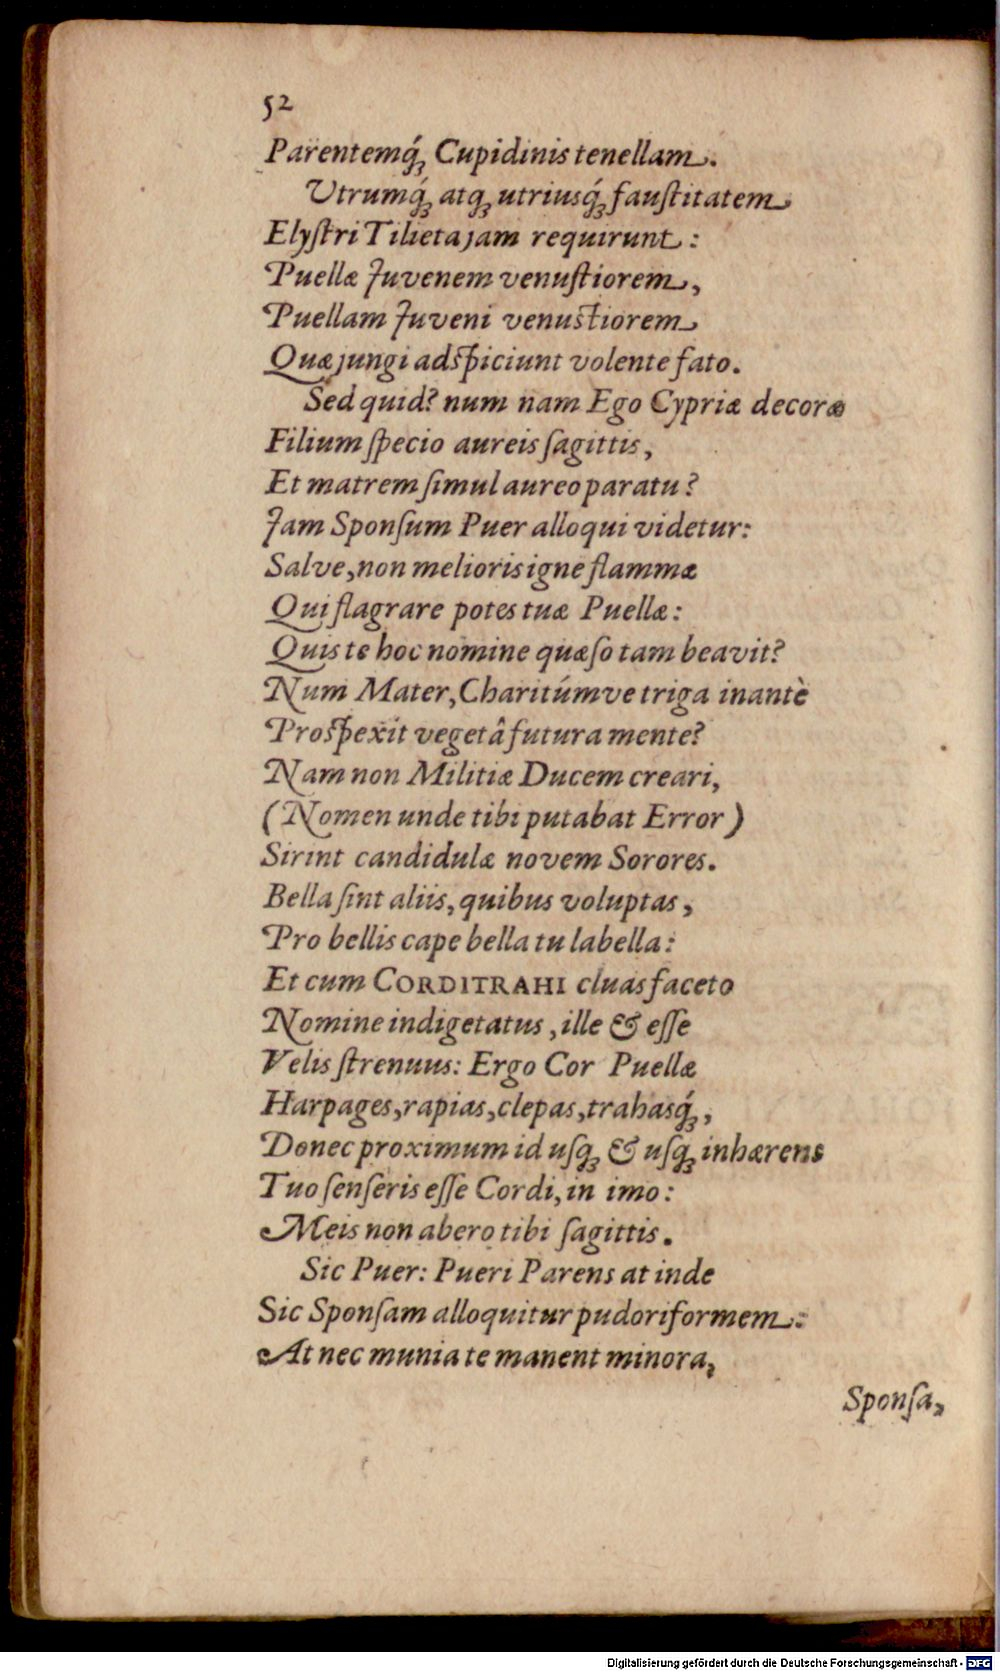 52
Parentemq́ꝫ Cupidinis tenellam.
Utrumq́ꝫ atqꝫ utriusq́ꝫ fauſtitatem
Elyſtri Tilieta jam requirunt:
Puellæ Juvenem venuſtiorem,
Puellam Juveni venuſtiorem
Quæ jungi adſpiciunt volente fato.
Sed quid? num nam Ego Cypriæ decoræ
Filium ſpecio aureis ſagittis,
Et matrem ſimul aureo paratu?
Jam Sponſum Puer alloqui videtur:
Salve, non melioris igne flammæ
Qui flagrare potes tuæ Puellæ:
Quis te hoc nomine quæſo tam beavit?
Num Mater, Charitúmve triga inantè
Proſpexit vegetâ futura mente?
Nam non Militiæ Ducem creari,
(Nomen unde tibi putabat Error)
Sirint candidulæ novem Sorores.
Bella ſint aliis, quibus voluptas,
Pro bellis cape bella tu labella:
Et cum CORDITRAHI cluas faceto
Nomine indigetatus, ille & eſſe
Velis ſtrenuus: Ergo Cor Puellæ
Harpages, rapias, clepas, trahasq́ꝫ,
Donec proximum id uſqꝫ & uſqꝫ inhærens
Tuo ſenſeris eſſe Cordi, in imo:
Meis non abero tibi ſagittis.
Sic Puer: Pueri Parens at inde
Sic Sponſam alloquitur pudoriformem:
At nec munia te manent minora,
Sponſa,
Digitalisierung gefördert durch die Deutsche Forschungsgemeinschaft - DFG